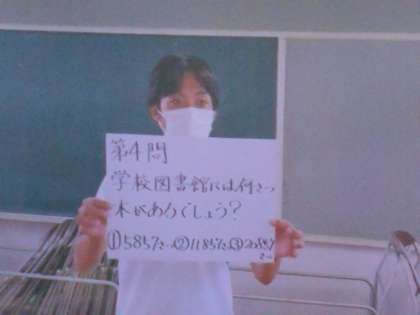 第4問
学校図書館には何さつ
本があるでしょう?
①5857さつ②11857さつ③20857
さつ